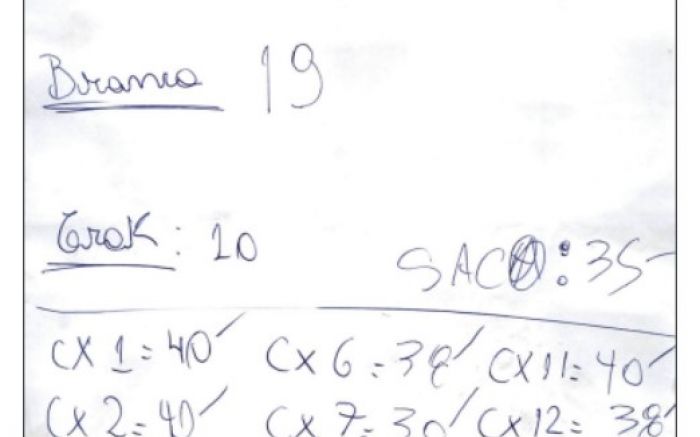 Branco 19
Grok: 10
SACO: 35
CX 1 = 40 CX 6 = 38 CX 11 = 40
CX 2 = 40 CX 7 = 30 CX 12 = 38